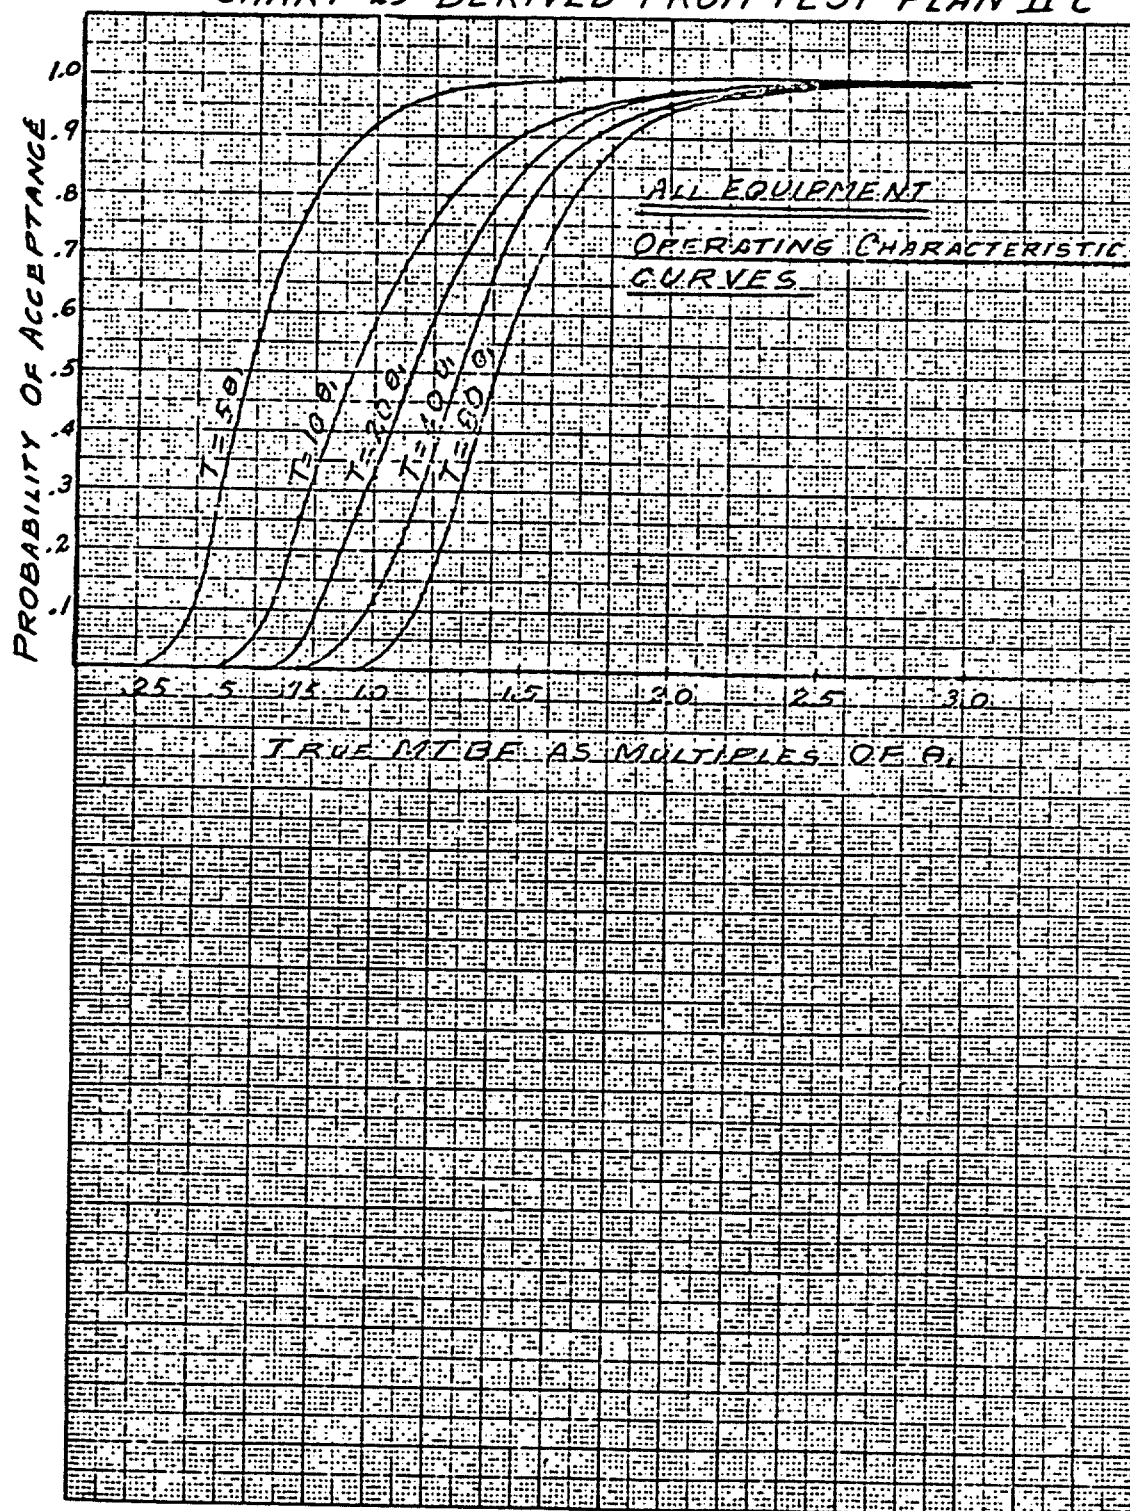 CHART IS DERIVED FROM TEST PLAN II C
PROBABILITY OF ACCEPTANCE
1.0
.9
.8
.7
.6
.5
.4
.3
.2
.1
ALL EQUIPMENT
OPERATING CHARACTERISTIC
CURVES
T=5θ₁
T=10θ₁
T=20θ₁
T=40θ₁
T=
.25 .5 .75 1.0 1.5 2.0 2.5 3.0
TRUE MTBF AS MULTIPLES OF θ₁